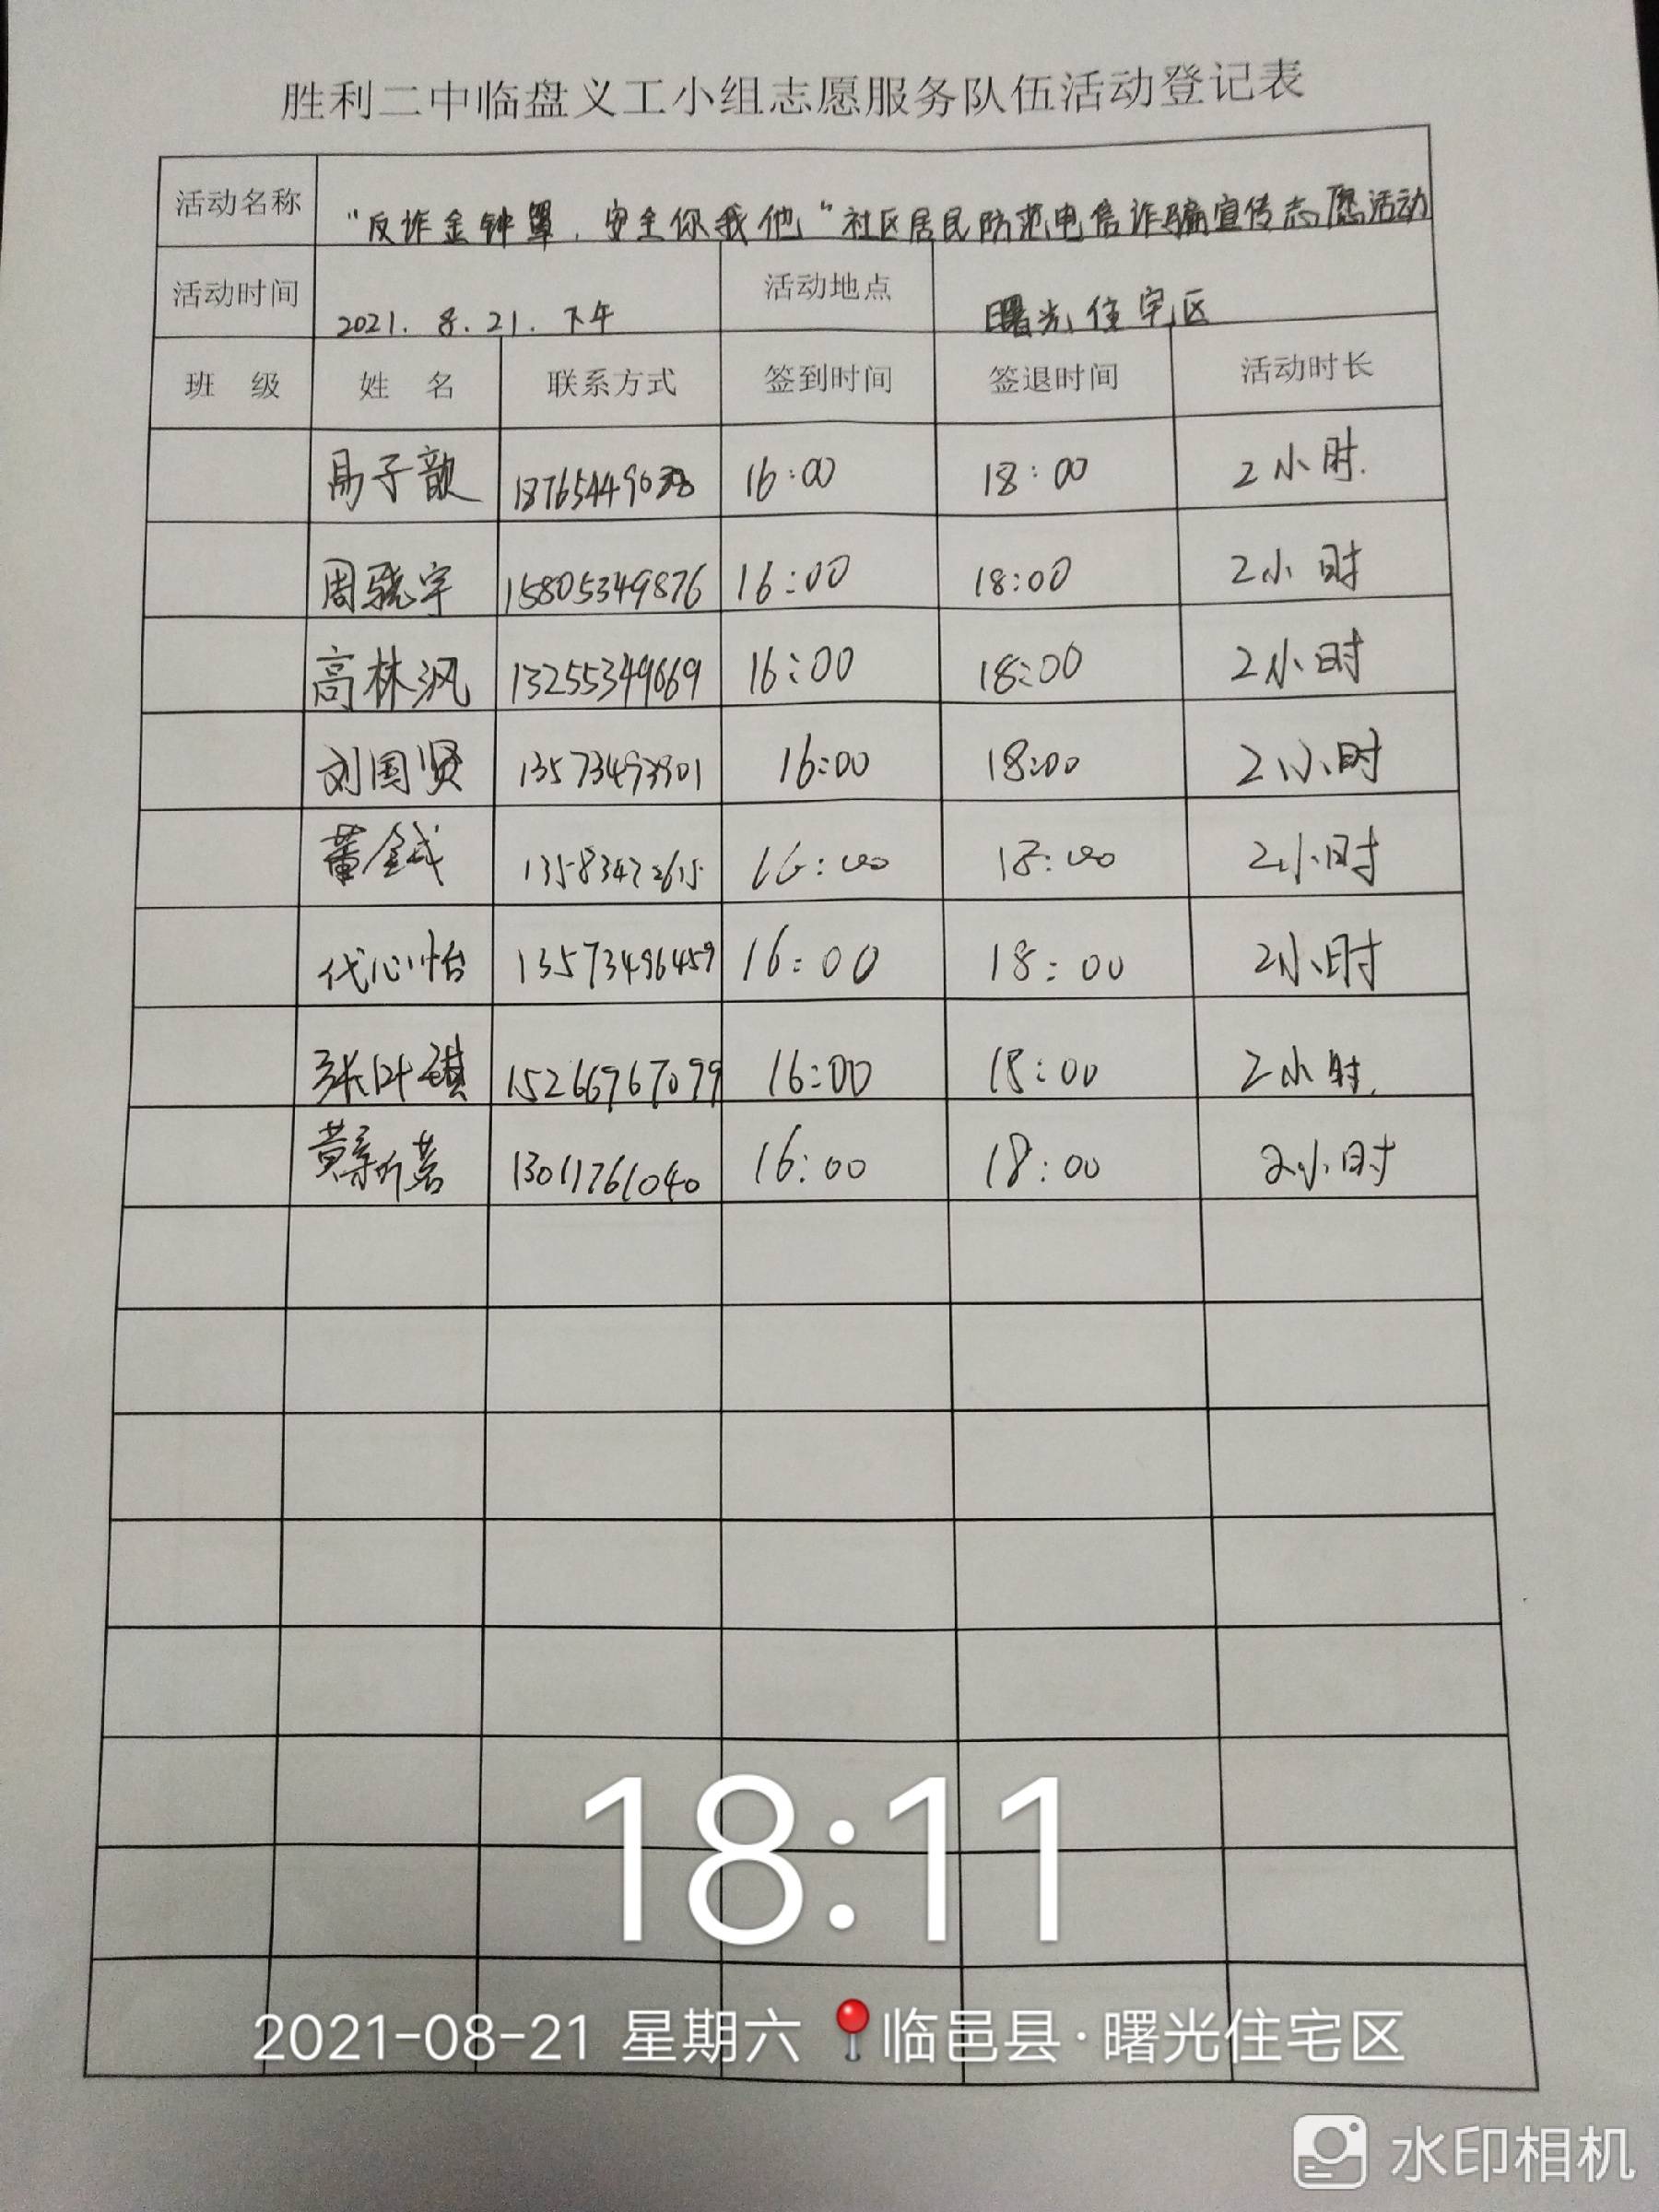 胜利二中临盘义工小组志愿服务队伍活动登记表
活动名称 “反诈金钟罩，安全你我他”社区居民防范电信诈骗宣传志愿活动
活动时间 2021. 8. 21. 下午 活动地点 曙光住宅区
班 级 姓 名 联系方式 签到时间 签退时间 活动时长
高子歆 16:00 18:00 2小时.
周骁宇 15805349876 16:00 18:00 2小时
高林沨 13255349669 16:00 18:00 2小时
刘国贤 16:00 18:00 2小时
16:00 18:00 2小时
代心怡 13573496459 16:00 18:00 2小时
张叶琪 15266967099 16:00 18:00 2小时.
黄新茗 13011761040 16:00 18:00 2小时
18:11
2021-08-21 星期六 临邑县·曙光住宅区
水印相机